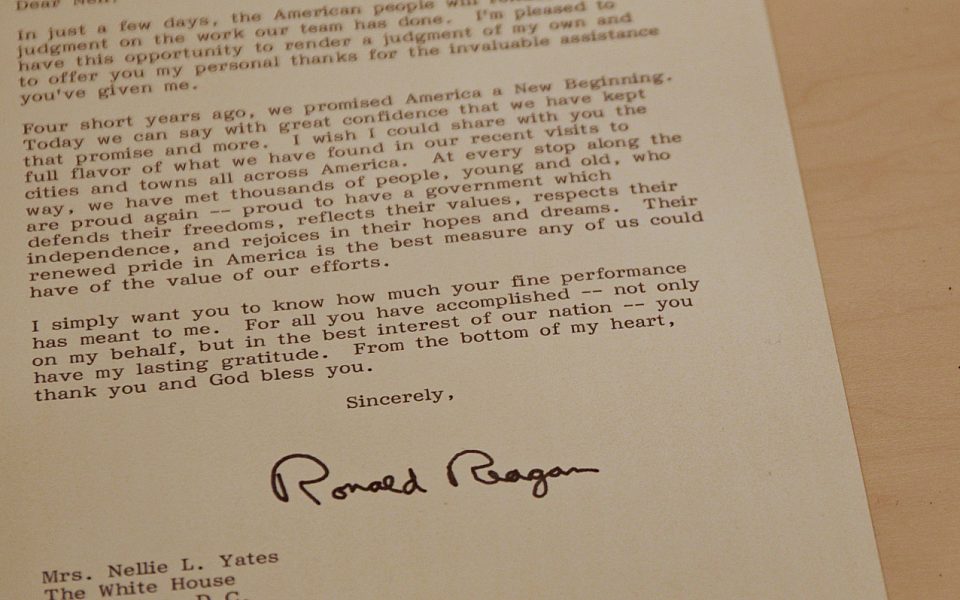 Dear Nell:
In just a few days, the American people will
judgment on the work our team has done. I'm pleased to
have this opportunity to render a judgment of my own and
to offer you my personal thanks for the invaluable assistance
you've given me.
Four short years ago, we promised America a New Beginning.
Today we can say with great confidence that we have kept
that promise and more. I wish I could share with you the
full flavor of what we have found in our recent visits to
cities and towns all across America. At every stop along the
way, we have met thousands of people, young and old, who
are proud again -- proud to have a government which
defends their freedoms, reflects their values, respects their
independence, and rejoices in their hopes and dreams. Their
renewed pride in America is the best measure any of us could
have of the value of our efforts.
I simply want you to know how much your fine performance
has meant to me. For all you have accomplished -- not only
on my behalf, but in the best interest of our nation -- you
have my lasting gratitude. From the bottom of my heart,
thank you and God bless you.
Sincerely,
Ronald Reagan
Mrs. Nellie L. Yates
The White House
D.C.